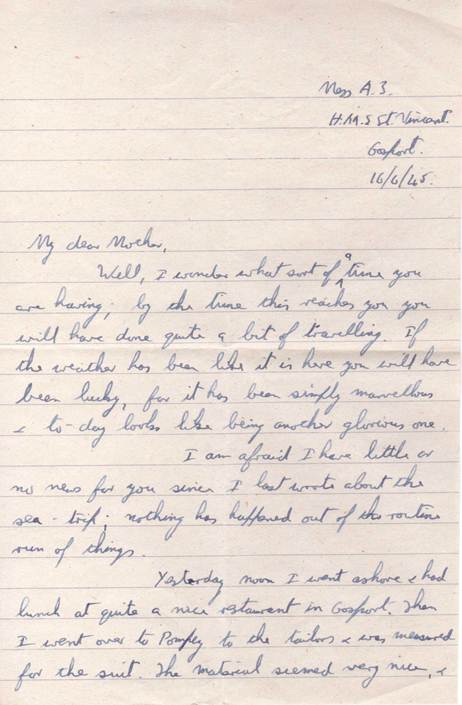 Mess A.3.
H.M.S St. Vincent.
Gosport.
16/6/45.
My dear Mother,
Well, I wonder what sort of a time you
are having; by the time this reaches you you
will have done quite a bit of travelling. If
the weather has been like it is here you will have
been lucky, for it has been simply marvellous
& to-day looks like being another glorious one.
I am afraid I have little or
no news for you since I last wrote about the
sea-trip; nothing has happened out of the routine
run of things.
Yesterday noon I went ashore & had
lunch at quite a nice restaurant in Gosport. Then
I went over to Pompey to the tailors & was measured
for the suit. The material seemed very nice, &